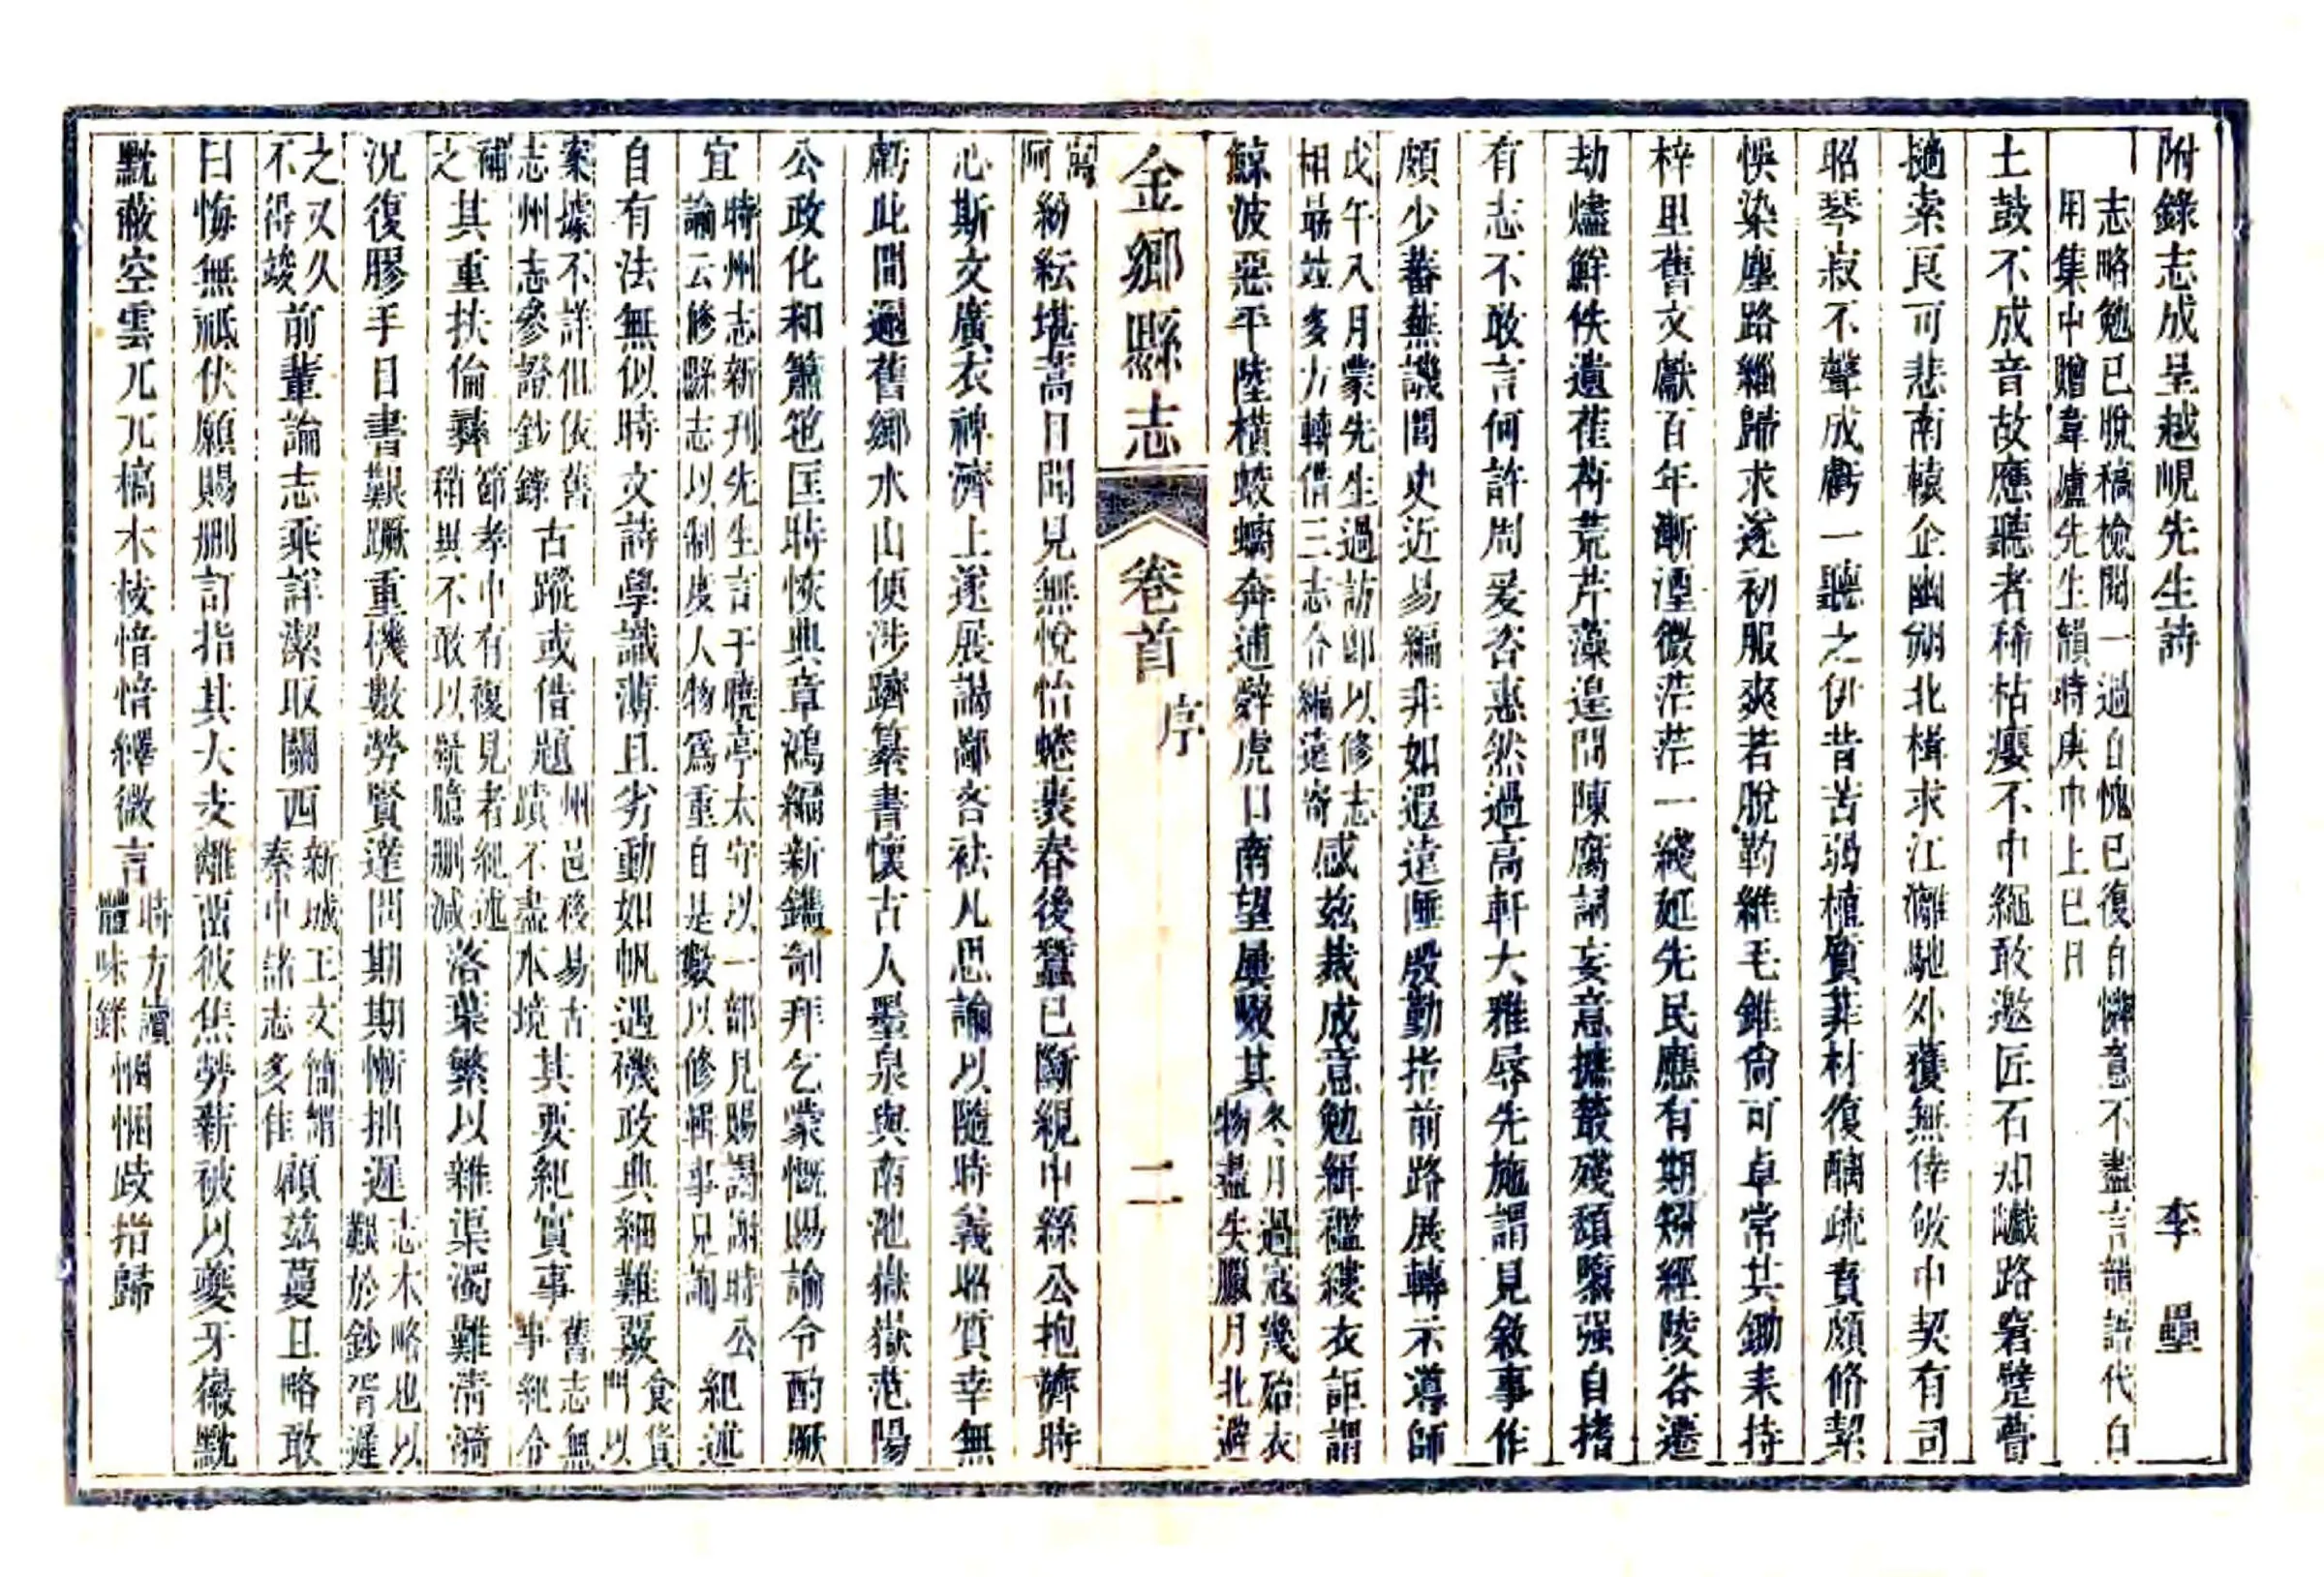 附錄志成呈越峴先生詩 李壘
志略勉已脫稿檢閱一過自愧已復自憐意不盡言韻語代白
用集中贈韋廬先生韻時庚申上巳日
土鼓不成音故應聽者稀枯癭不中繩敢邀匠石知巇路窘躄瞢
擿索良可悲南轅企幽朔北楫求江灕馳外獲無倖倣中契有司
昭琴寂不聲成虧一聽之伊昔苦弱植質菲材復醨疏賁頗脩絜
悞染塵路緇歸求遂初服爽若脫勒維毛錐尚可卓常共鋤耒持
梓里舊文獻百年漸湮微茫茫一綫延先民應有期矧經陵谷遷
劫燼鮮佚遺萑苻荒芹藻遑問陳腐詞妄意摭叢殘頹墮强自揩
有志不敢言何許周爰咨惠然過高軒大雅辱先施謂見敘事作
頗少蕃蕪譏閒史近易編非如遐遠匯殷勤指前路展轉示導師
戊午八月蒙先生過訪即以修志
相勗並多方轉借三志令編遠寄
感茲裁成意勉緝襤縷衣詎謂
鯨波惡平陸橫蛟螭奔逋辟虎口南望屢啜其
冬月過寇幾殆衣
物盡失臘月北避
金鄉縣志 卷首 序 二
寓
阿
紛紜堪蒿目聞見無悅怡蜷裘春後蠶已斷緄中絲公抱濟時
心斯文廣衣裨濟上遂展謁鄙吝袪凡思諭以隨時義昭質幸無
虧此間邇舊鄉水山便涉躋纂書懷古人墨泉與南池嶽嶽范陽
公政化和簫箎匡時恢典章鴻編新鐫劀拜乞蒙慨賜諭令酌厥
宜
時州志新刊先生言于曉亭太守以一部見賜謁謝時公
論云修縣志以制度人物爲重自是數以修輯事見詢
紀述
自有法無似時文詩學識薄且劣動如帆遇磯政典細難覈
食貨
門以
案據不詳但依舊
志州志參證鈔錄
古蹤或借題
州邑後易古
蹟不盡水境
其要紀實事
舊志無
事紀今
補
之
其重扶倫彝
節孝中有復見者紀述
稍與不敢以歉臆刪減
洛葉繁以雜渠濁難淸漪
況復膠手目書艱蹶重機數勞賢達問期期慚拙遲
志木略也以
艱於鈔胥遲
之又久
不得竣
前輩論志乘詳潔取關西
新城王文簡謂
秦中諸志多佳
顧茲蔓且略敢
日悔無祗伏願賜刪訂指其大支離啚彼焦勞薪被以夔牙徽黜
黜蔽空雲兀兀槁木枝愔愔繹微言
時方讀
體味錄
悃悃歧指歸